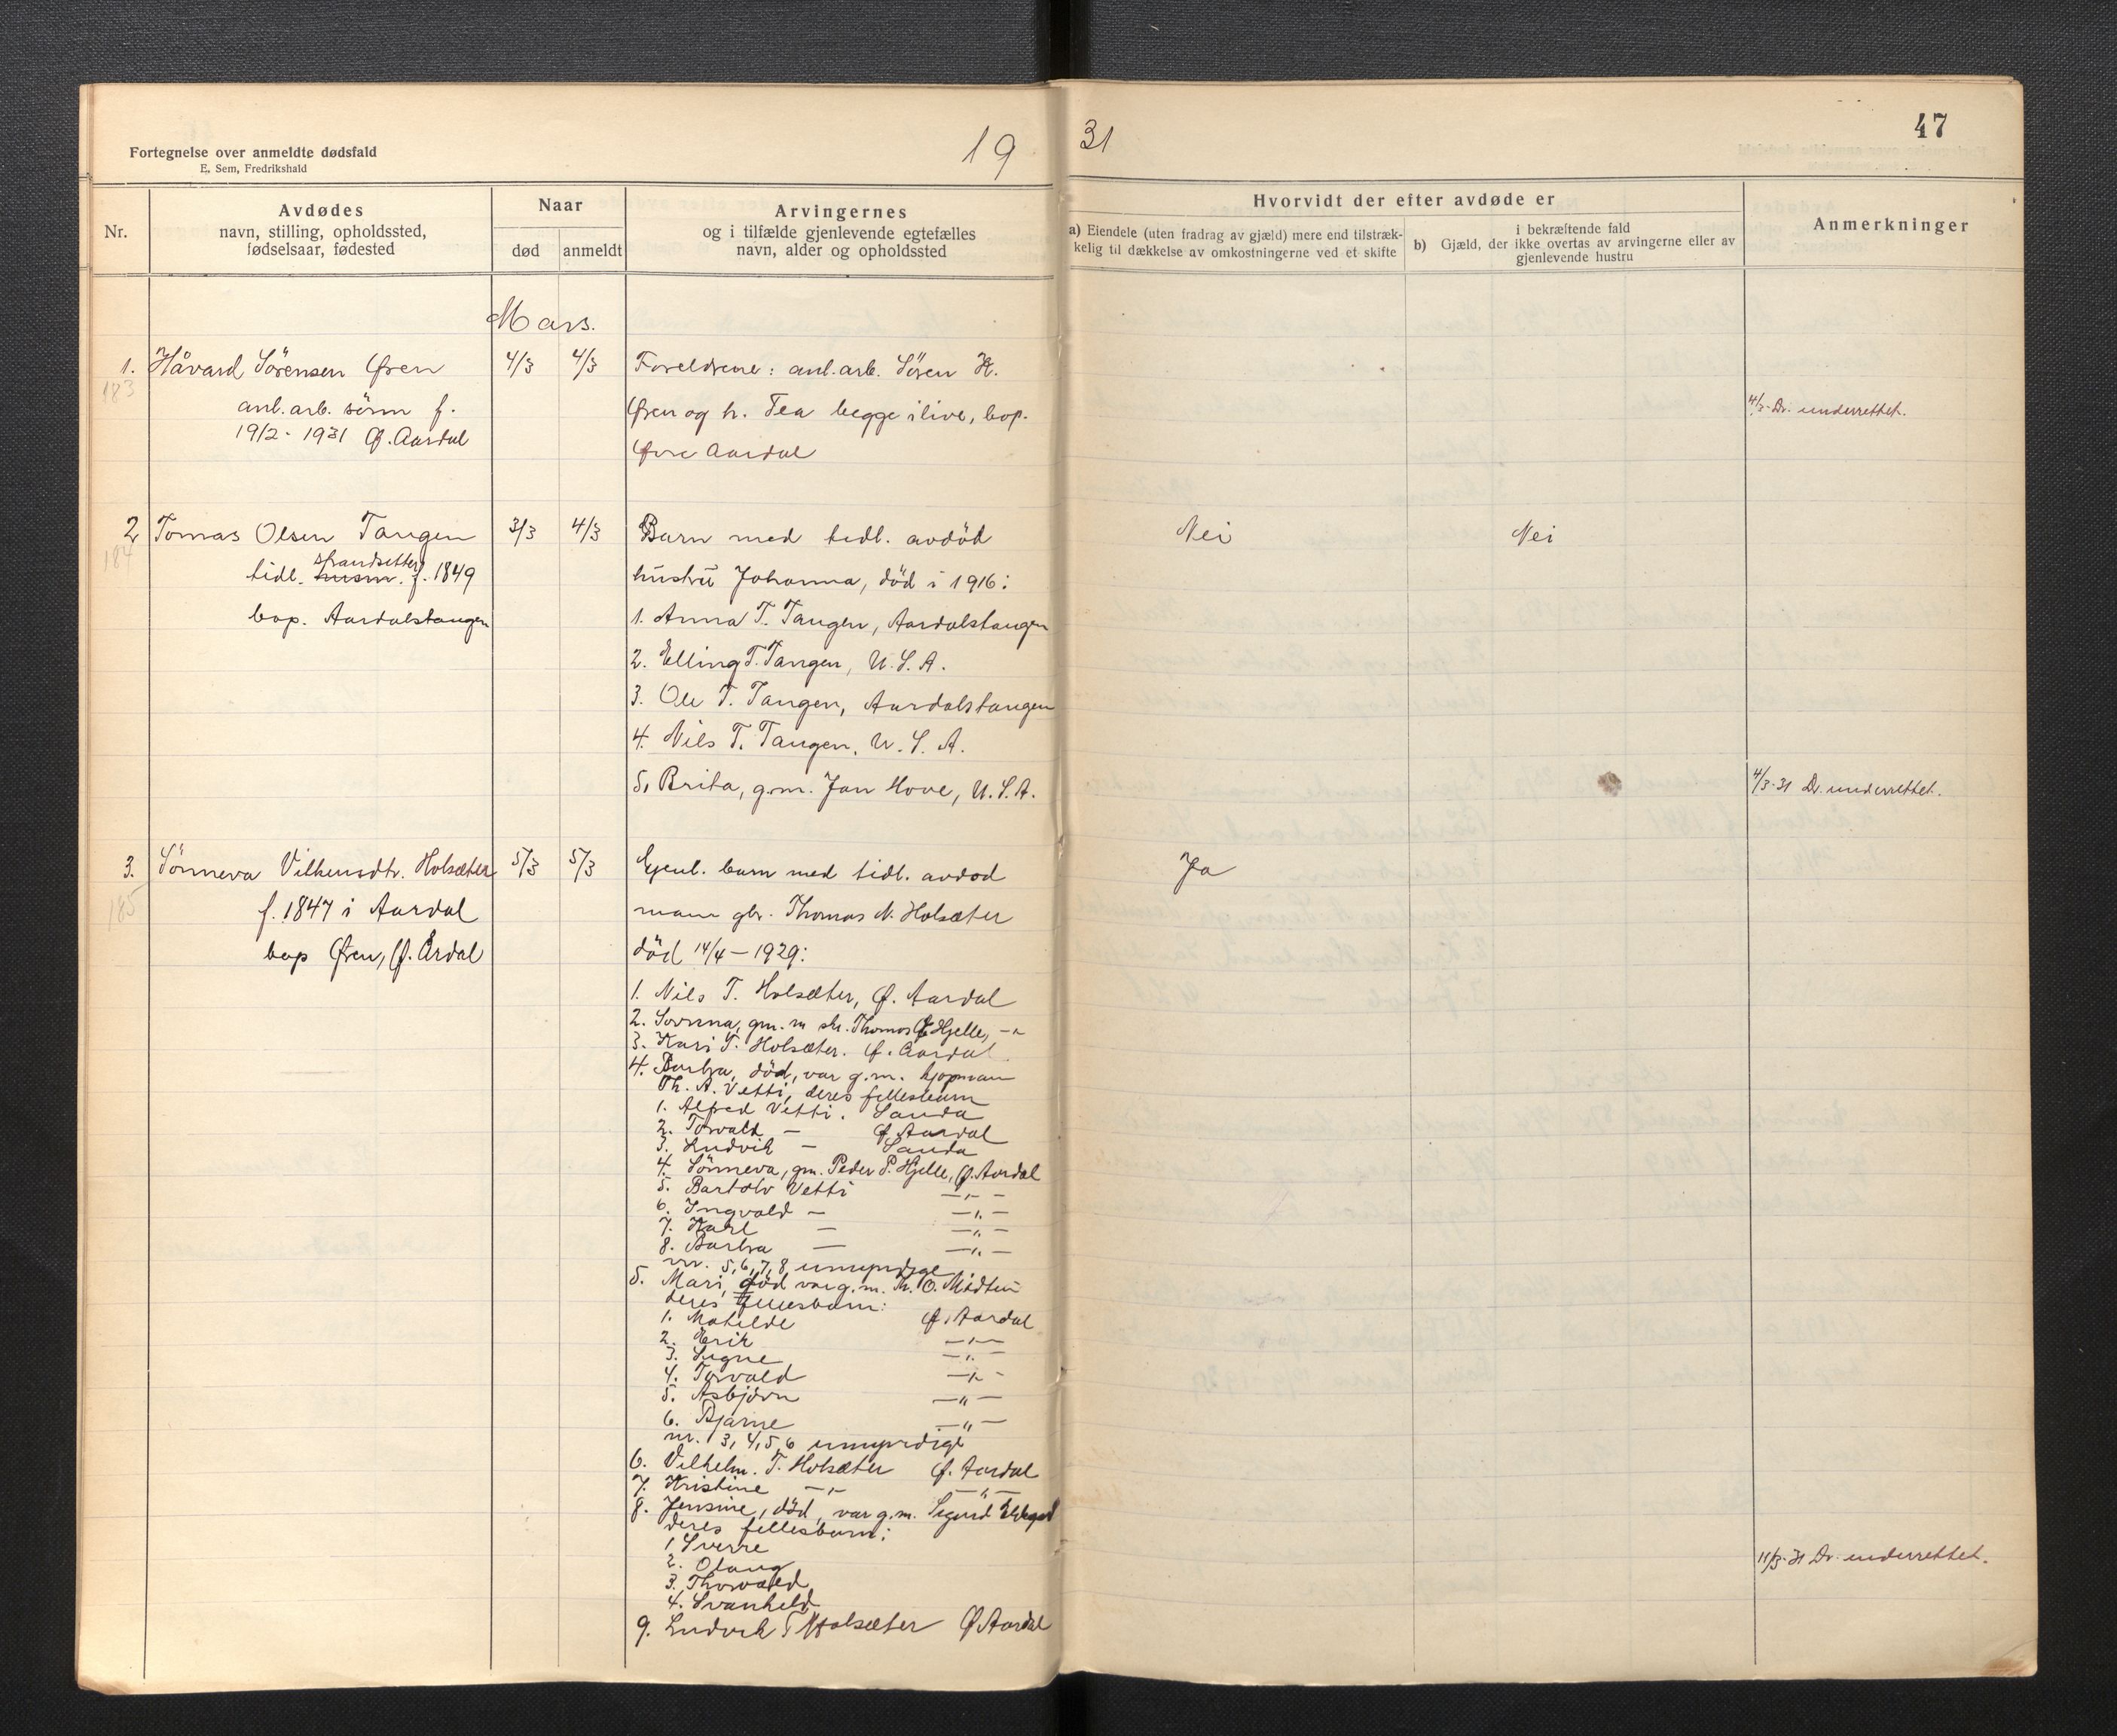 Fortegnelse over anmeldte dødsfald
E. Sem, Fredrikshald
19 31
47
Nr.
Avdødes
navn, stilling, opholdssted,
fødselsaar, fødested
Naar
død
anmeldt
Arvingernes
og i tilfælde gjenlevende egtefælles
navn, alder og opholdssted
Hvorvidt der efter avdøde er
a) Eiendele (uten fradrag av gjæld) mere end tilstræk-
kelig til dækkelse av omkostningerne ved et skifte
i bekræftende fald
b) Gjæld, der ikke overtas av arvingerne eller av
gjenlevende hustru
Anmerkninger
Mars.
1. Håvard Sörensen Øren 4/3 4/3
183
anl. arb. sönn f.
19/2 - 1931 Ø. Aardal
Foreldrene: anl. arb. Sören H.
Øren og h. Tea begge i live, bop.
Øvre Aardal
4/3- Dr. underrettet.
2 Tomas Olsen Tangen 3/3 4/3
184
strandsitter
tidl. husm. f. 1849
bop. Aardalstangen
Barn med tidl. avdöd
hustru Johanna, död i 1916:
1. Anna T. Tangen, Aardalstangen
2. Elling T. Tangen, U.S.A.
3. Ole T. Tangen, Aardalstangen
4. Nils T. Tangen, U.S.A.
5. Brita, g.m. Jan Hove, U.S.A.
Nei Nei
4/3-31 Dr. underrettet.
3. Sönneva Vilhemsdtr. Holsæter 5/3 5/3
185
f. 1847 i Aardal
bop Øren, Ø. Årdal
Gjenl. barn med tidl. avdød
mann gbr. Thomas N. Holsæter
död 14/4 - 1929:
Ja
1. Nils T. Holsæter, Ø. Aardal
2. gm. m Thomas Hjelle, -"-
3. Kari T. Holsæter. Ø. Aardal
4. Barbra, död, var g.m. kjøpmann
Th. A. Vetti, deres fellesbarn
1. Alfred Vetti. Sauda
2. Torvald - Ø. Aardal
3. Ludvik - Sauda
4. Sönneva, gm. Peder P. Hjelle, Ø. Aardal
5. Bartolv Vetti -"-
6. Ingvald - -"-
7. Karl - -"-
8. Barbra - -"-
nr. 5, 6, 7, 8 umyndige
5. Mari, död var g.m. Th. O. Midtun
deres fellesbarn:
1. Matilde Ø. Aardal
2. Erik -"-
3. Signe -"-
4. Torvald -"-
5. Asbjörn -"-
6. Bjarne -"-
nr. 3, 4, 5, 6 umyndige
6. Vilhelm. T. Holsæter Ø. Aardal
7. Kristine -"- -"-
8. Jensine, död, var g.m. Sigurd Eldegard
deres fellesbarn:
1. Sverre
2. Olaug
3. Thorvald
4. Svanhild
9. Ludvik T Holsæter Ø Aardal
11/3-31 Dr. underrettet.